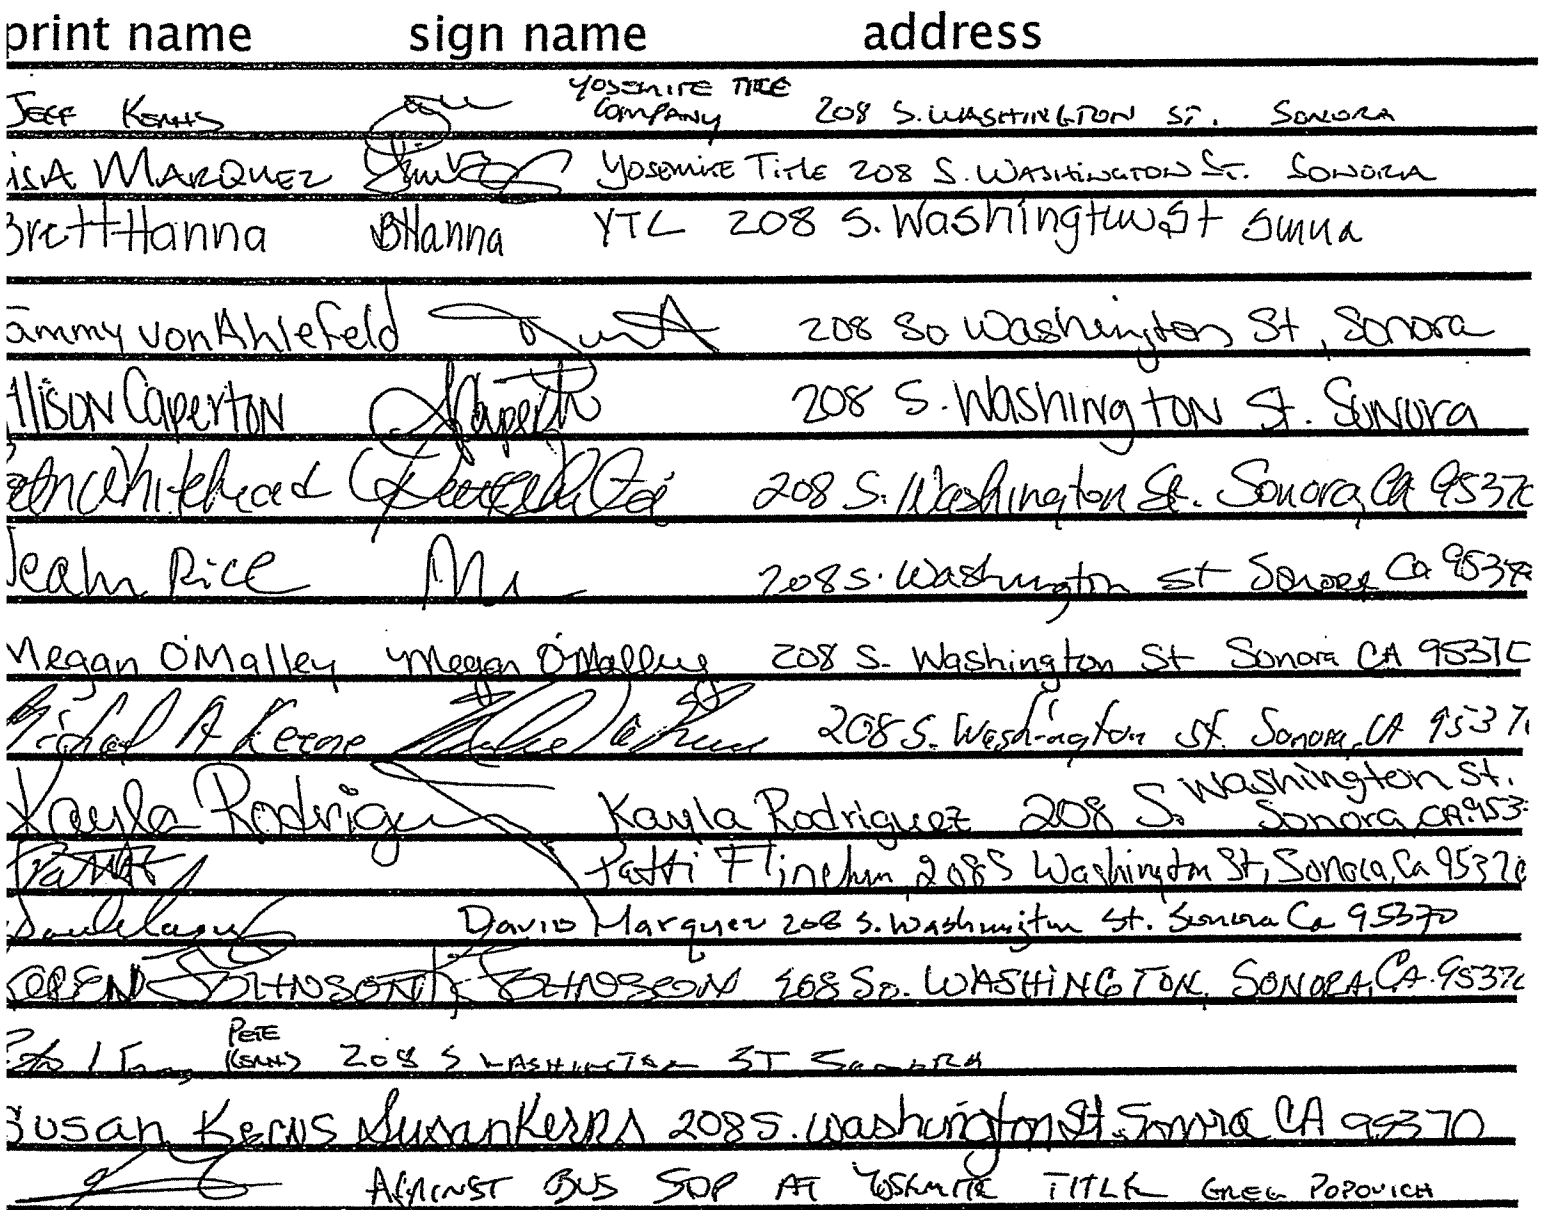 print name sign name address
Jeff Kerns Yosemite Title Company 208 S. Washington St. Sonora
isa Marquez Yosemite Title 208 S. Washington St. Sonora
Brett Hanna BHanna YTC 208 S. Washington St
ammy vonAhlefeld 208 So Washington St, Sonora
Alison Caperton 208 S. Washington St. Sonora
Whitehead 208 S. Washington St. Sonora, Ca 9537
Leah Rice 208 S. Washington St Sonora Ca 9537
Megan O'Malley Megan O'Malley 208 S. Washington St Sonora CA 95370
Michael A Keene 208 S. Washington St. Sonora, CA 9537
Kayla Rodrigu Kayla Rodriguez 208 S. Washington St. Sonora, CA. 953
Patti 208 S Washington St, Sonora, Ca 95370
David Marquez 208 S. Washington St. Sonora Ca 95370
LOREN JOHNSON JOHNSON 208 So. WASHINGTON, SONORA, CA. 9537
Pete Kerns 208 S Washington ST Sonora
Susan Kerns Susan Kerns 208 S. Washington St. Sonora CA 95370
AGAINST BUS SOP AT YOSEMITE TITLE GREG POPOVICH